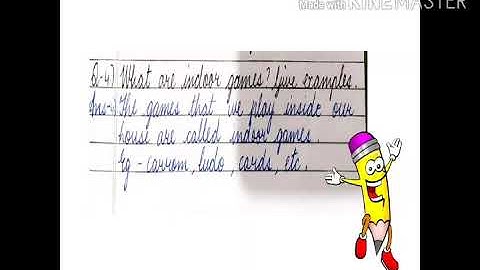 Made with KINEMASTER
Q-4) What are indoor games? Give examples.
Ans-4) The games that we play inside our
house are called indoor games.
Eg - carrom, ludo, cards, etc.